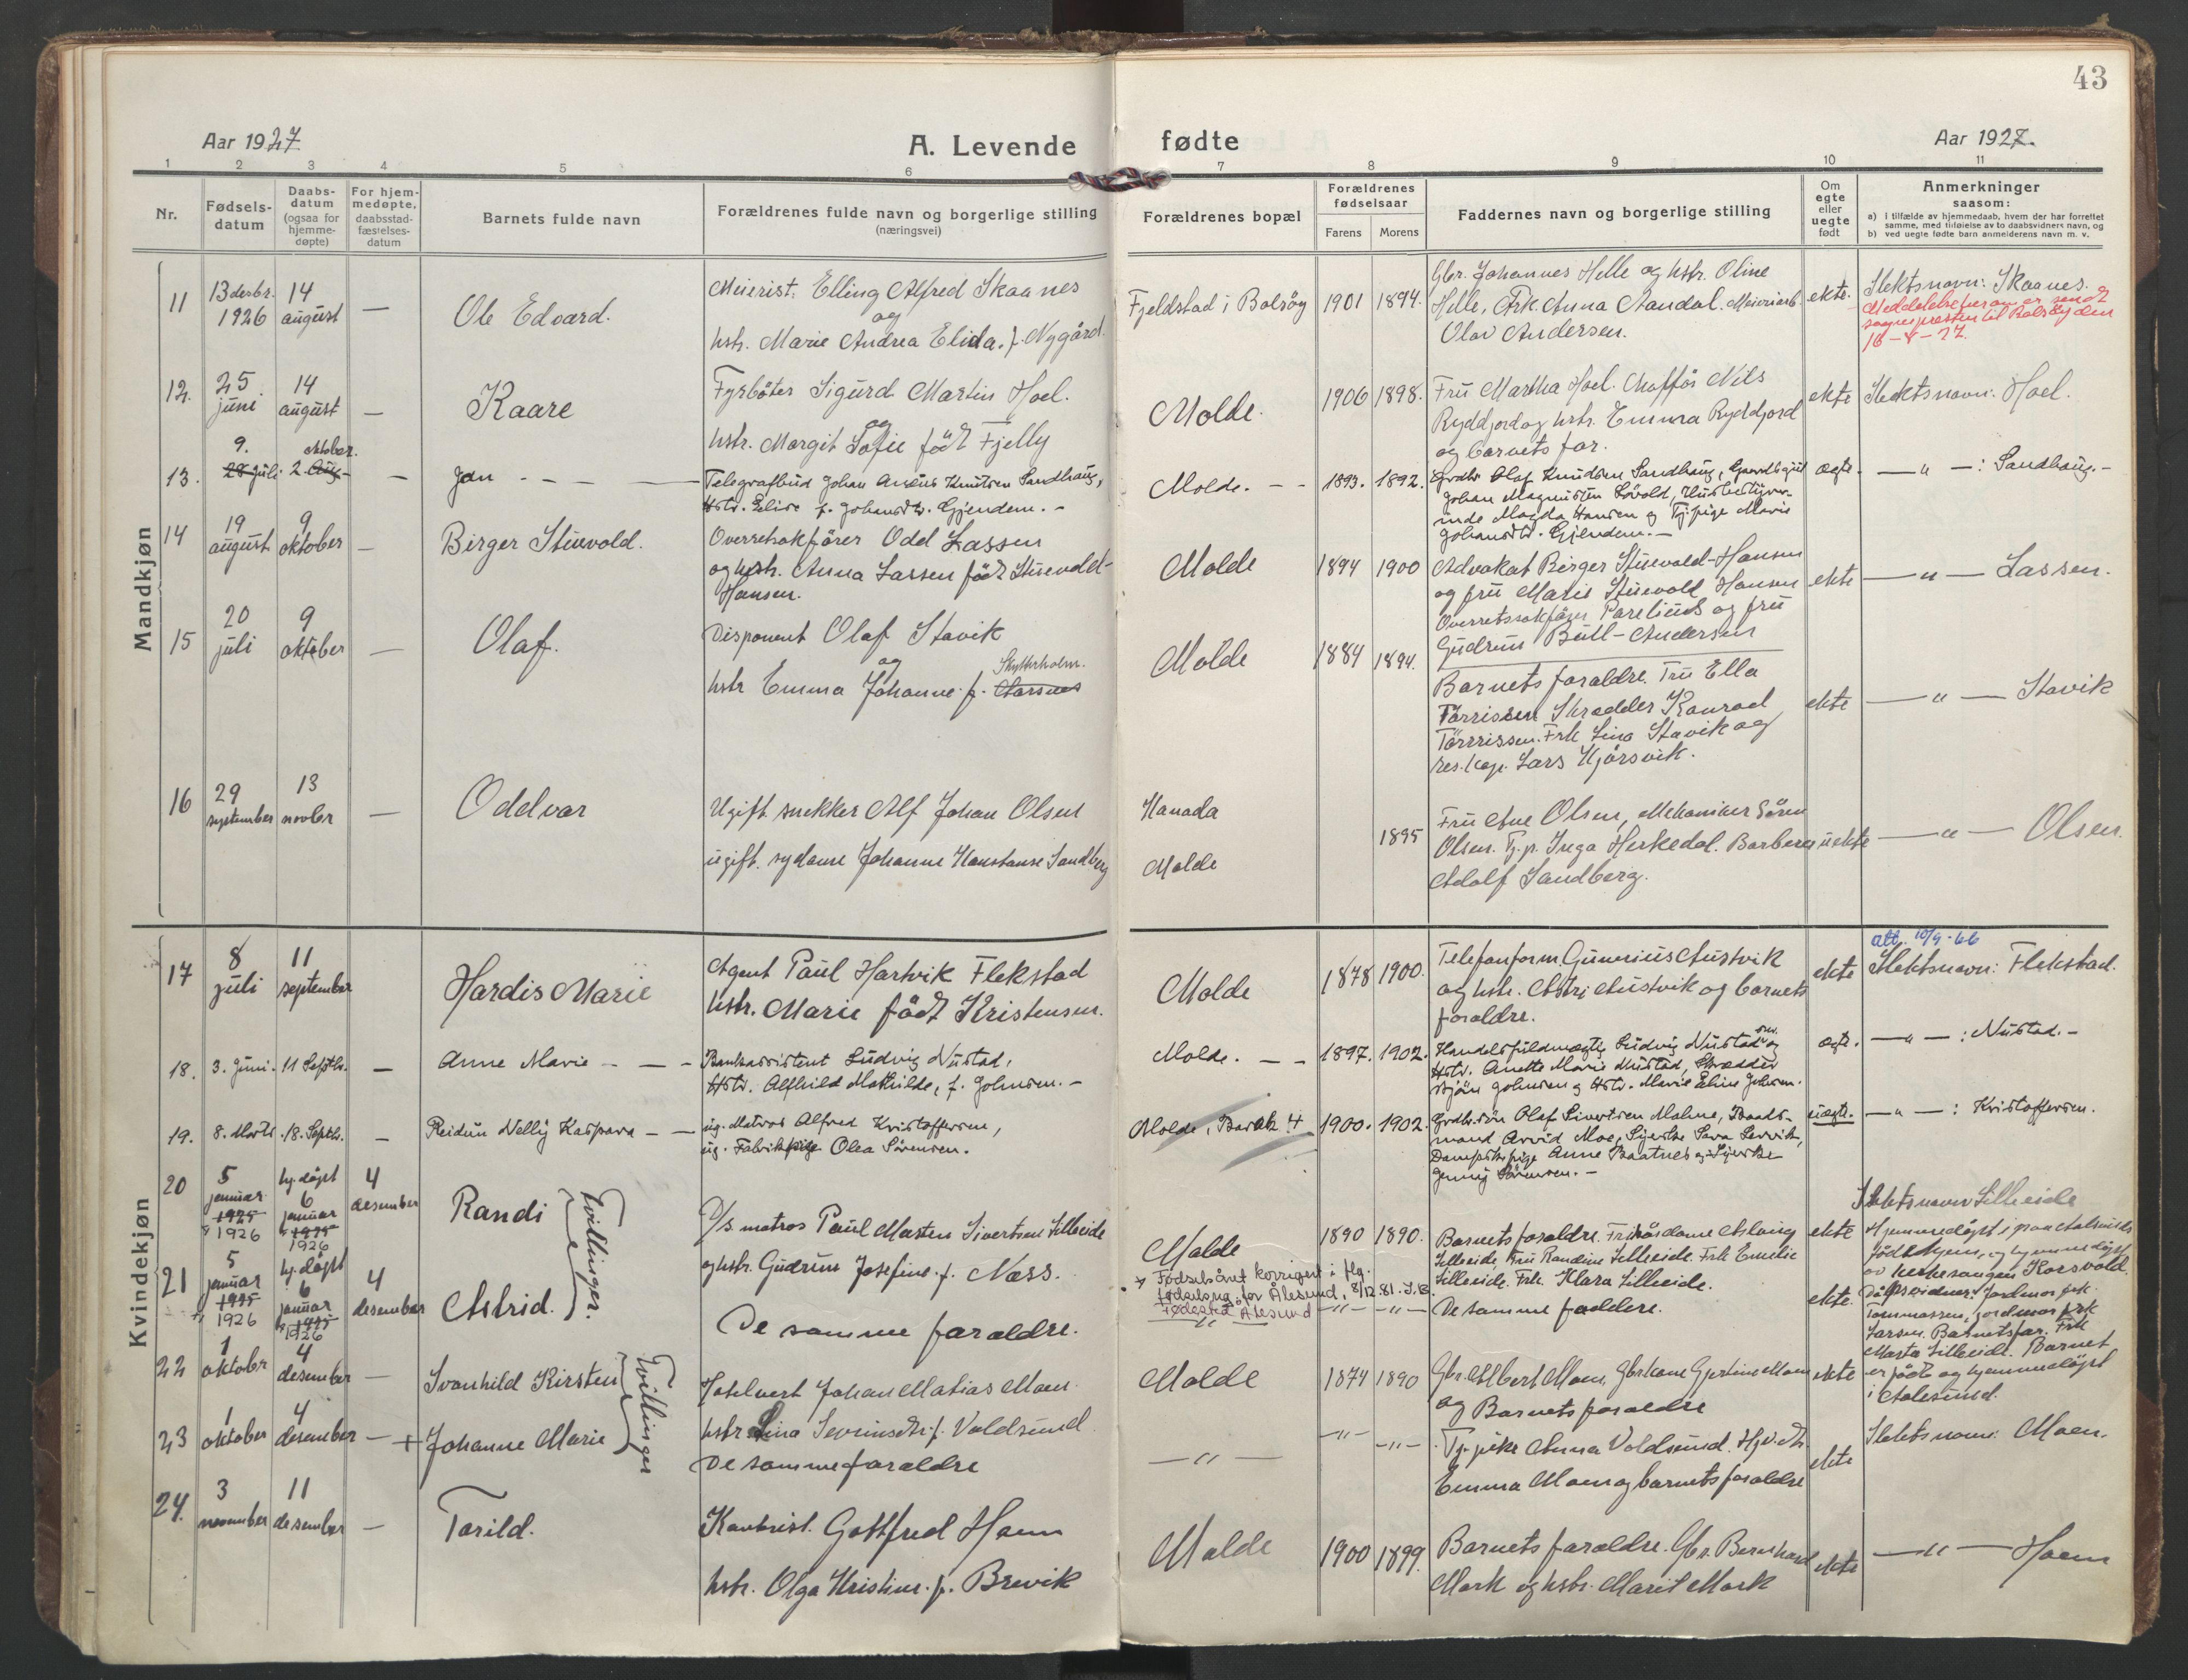 43
Aar 1927
A. Levende
fødte
Aar 1927.
1 2 3 4 5 6 7 8 9 10 11
Nr.
Fødsels-
datum
Daabs-
datum
(ogsaa for
hjemme-
døpte)
For hjem-
medøpte,
daabsstad-
fæstelses-
datum
Barnets fulde navn
Forældrenes fulde navn og borgerlige stilling
(næringsvei)
Forældrenes bopæl
Forældrenes
fødselsaar
Farens Morens
Faddernes navn og borgerlige stilling
Om
egte
eller
uegte
født
Anmerkninger
saasom:
a) i tilfælde av hjemmedaab, hvem der har forrettet
samme, med tilføielse av to daabsvidners navn, og
b) ved uegte fødte barn anmelderens navn m. v.
Mandkjøn
11
13 desbr.
1926
14
august
—
Ole Edvard.
Meierist. Elling Alfred Skaanes
og
hstr. Marie Andrea Elida. f. Nygård.
Fjeldstad i Bolsøy
1901
1894.
Gbr. Johannes Helle og hstr. Oline
Helle, Frk. Anna Aandal. Meieriarb.
Olav Andersen.
ekte.
Slektsnavn: Skaanes.
Meddelelse herom er sendt
sognepresten til Bolsøy den
16-8-27.
12.
25
juni
14
august
—
Kaare
Fyrbøter Sigurd Martin Hoel.
og
hstr. Margit Sofie født Fjelly
Molde.
1906
1898.
Fru Martha Hoel. Chaffør Nils
Ryddjord og hstr. Emma Ryddjord
og barnets far.
ekte
Slektsnavn: Hoel.
13.
9.
28 juli
oktober.
2. Aug.
—
Jan
Telegrafbud Johan Anæus Knutsen Sandhaug,
Hstr. Elise f. Johansdtr. Gjendem. -
Molde.
1893.
1892.
Grdbr. Olaf Knudsen Sandhaug,
Johan Magnussen Løvold,
inde Magda Hansen og Tj.pige Marie
Johansdtr. Gjendem. -
ægte.
— " —: Sandhaug. -
14
19
august
9
oktober
—
Birger Stuevold.
Overretsakfører Odd Lassen
og hstr. Anna Lassen født Stuevold-
Hansen.
Molde
1894
1900
Advokat Birger Stuevold-Hansen
og fru Marie Stuevold Hansen
Overretssakfører Parelius og fru
Gudrun Bull-Andersen
ekte
— " — Lassen.
15
20
juli
9
oktober
—
Olaf.
Disponent Olaf Stavik
og
hstr Emma Johanne f.
Molde
1884
1894.
Barnets foraldre. Fru Ella
Tørrissen Skredder Konrad
Tørrrissen. Frk Lina Stavik og
res.kap. Lars Kjørsvik.
ekte
— " — Stavik
16
29
september
13
novbr
—
Oddvar
Ugift. snekker Alf Johan Olsen
ugift. sydame Johanne Konstanse Sandberg
Kanada
Molde
1895
Fru Ane Olsen, Mekaniker Søren
Olsen. Tj.p. Inga Herkedal. Barberer
Adolf Sandberg.
uekte
— " — Olsen.
Kvindekjøn
17
8
juli
11
september
Hardis Marie
Agent Paul Hartvik Flekstad
hstr. Marie født Kristensen.
Molde
1878
1900.
Telefonform. Gunerius Austvik
og hstr. Astri Austvik og barnets
foraldre.
ekte
att. 10/9-66
Slektsnavn: Flekstad.
18.
3. Juni.
11 Septbr.
—
Anne Marie
Bankassistent Ludvig Nustad,
Hstr. Alfhild Mathilde, f. Johnsen. -
Molde.
1897.
1902.
Handelsfuldmægtig Ludvig Nustad sen. og
Hstr. Anette Marie Nustad, Skrædder
Johnsen og Hstr. Marie Eline Johnsen.
ægte.
— " —: Nustad. -
19.
8. Marts.
18. Septbr.
—
Reidun Nelly Kaspara
ug. Matros Alfred Kristoffersen,
ug. Fabrikpige Olea Sørensen.
Molde, Barak 4
1900.
1902.
Grdbr.søn Olaf Sivertsen Malme, Baads-
mand Arvid Moe, Syerske
Dampsk.pige Anne Baatnes og Syerske
Jenny Sørensen. -
uægte.
— " —: Kristoffersen.
20
5
januar
1925
1926
hj. døpt
6
januar
1925
1926
4
desember
Randi
Tvillinger.
D/s matros Paul Morten Sivertsen Silleeide
og hstr. Gudrun Josefine. f. Næss.
Molde
1890
1890.
Barnets foraldre. Frisørdame Aslaug
Silleeide, Fru Randine Silleeide. Frk Emilie
Silleeide. Frk. Klara Silleeide.
ekte
Slektsnavn Silleeide
Hjemmedøpt i paa Aalesunds
fødehjem, og hjemmedøpt
av kirkesanger Korsvold.
Dåpsvidner: Jordmor frk.
Tommassen, jordmor frk
Larsen. Barnets far. Frk
Marta Silleeide. Barnet
er født og hjemmedøpt
i Aalesund.
21
5
januar
1925
1926
hj. døpt
6
januar
1925
1926
4
desember
Astrid.
De samme foraldre.
Fødselsåret korrigert i flg.
fødselsreg. for Ålesund, 8/12.81. I.B.
Fødested Ålesund
— " —
— " —
De samme faddere.
ekte.
22
1
oktobr
4
desember
—
Svanhild Kirsten
Tvillinger
Hotelvert Johan Matias Moen
hstr Lina Severinsdtr. f. Voldsund.
Molde
1874
1890
Gbr. Albert Moen, Gbrkone Gjertine Moen
og Barnets foraldre
ekte
23
1
oktober
4
desember
—
+ Johanne Marie
De samme foraldre
— " —
— " —
— " —
Tj. pike Anna Voldsund.
Emma Moen og barnets foraldre
ekte
Slektsnavn: Moen.
24.
3
november
11
desember
—
Torild.
Kontorist. Gottfred Hoem
hstr. Olga Kristine. f. Brevik
Molde
1900
1899.
Barnets foraldre. Gbr. Bernhard
Mork og hstr. Marit Mork
ekte
— " — Hoem